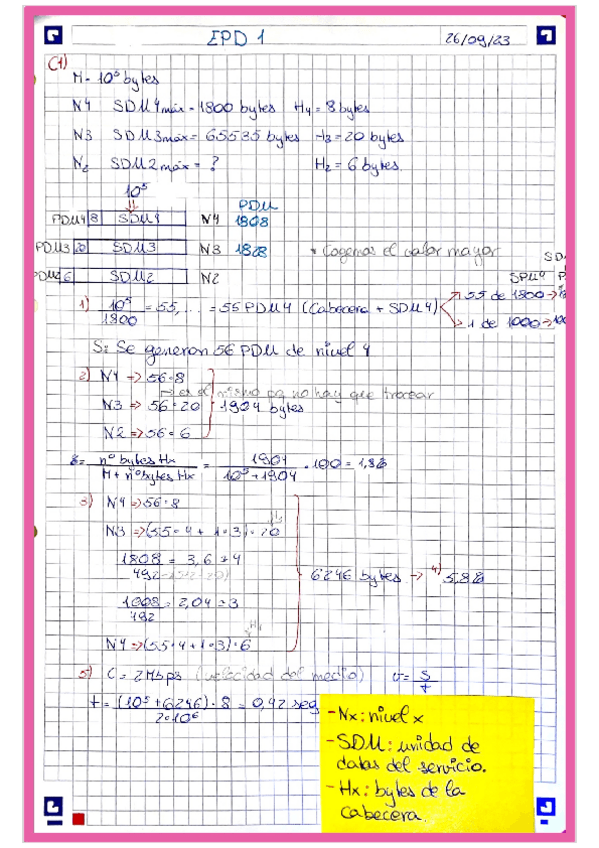 EPD 1
26/09/23
C1)
M = 10⁵ bytes
N4 SDU4máx = 1800 bytes H4 = 8 bytes
N3 SDU3máx = 65535 bytes H3 = 20 bytes
N2 SDU2máx = ? H2 = 6 bytes
10⁵
PDU
PDU4 8 SDU4 N4 1808
PDU3 20 SDU3 N3 1828 * Cogemos el valor mayor
PDU2 6 SDU2 N2
1) 10⁵/1800 = 55,... = 55 PDU4 (Cabecera + SDU4) 55 de 1800 →
1 de 1000 →
S: Se generan 56 PDU de nivel 4
2) N4 → 56·8
→ es el mismo pq no hay que trocear
N3 → 56·20 1904 bytes
N2 → 56·6
% = nº bytes Hx / M + nº bytes Hx = 1904 / 10⁵+1904 · 100 = 1,8%
3) N4 → 56·8
N3 → (55·4 + 1·3)·20
1808/492 = 3,6 → 4
6246 bytes → 4) 5,8%
1008/492 = 2,04 → 3
N4 → (55·4+1·3)·6
5) C = 2Mbps (velocidad del medio) v = s/t
t = (10⁵+6246)·8 / 2·10⁶ = 0,42 seg
- Nx: nivel x
- SDU: unidad de
datos del servicio.
- Hx: bytes de la
cabecera.